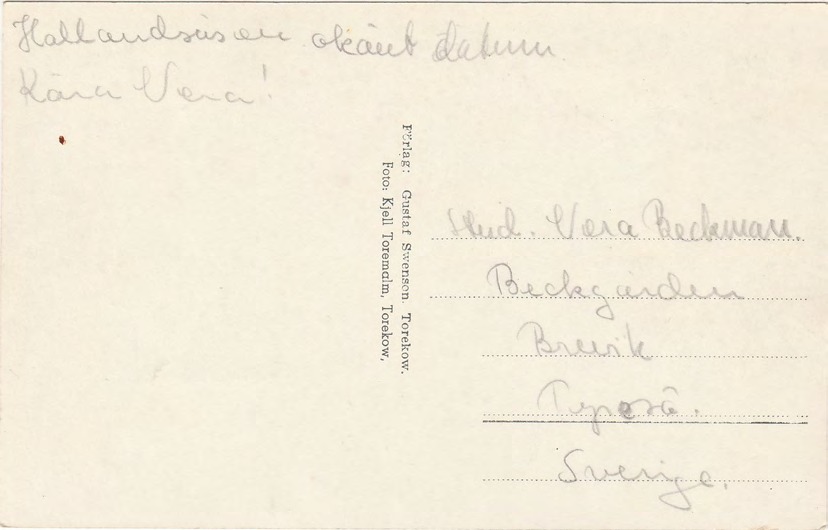 Hallandsåsen okänt datum
Kära Vera!
Förlag: Gustaf Swenson. Torekow.
Foto: Kjell Toremalm, Torekow,
Stud. Vera Beckman.
Beckgården
Brevik
Tyresö.
Sverige.